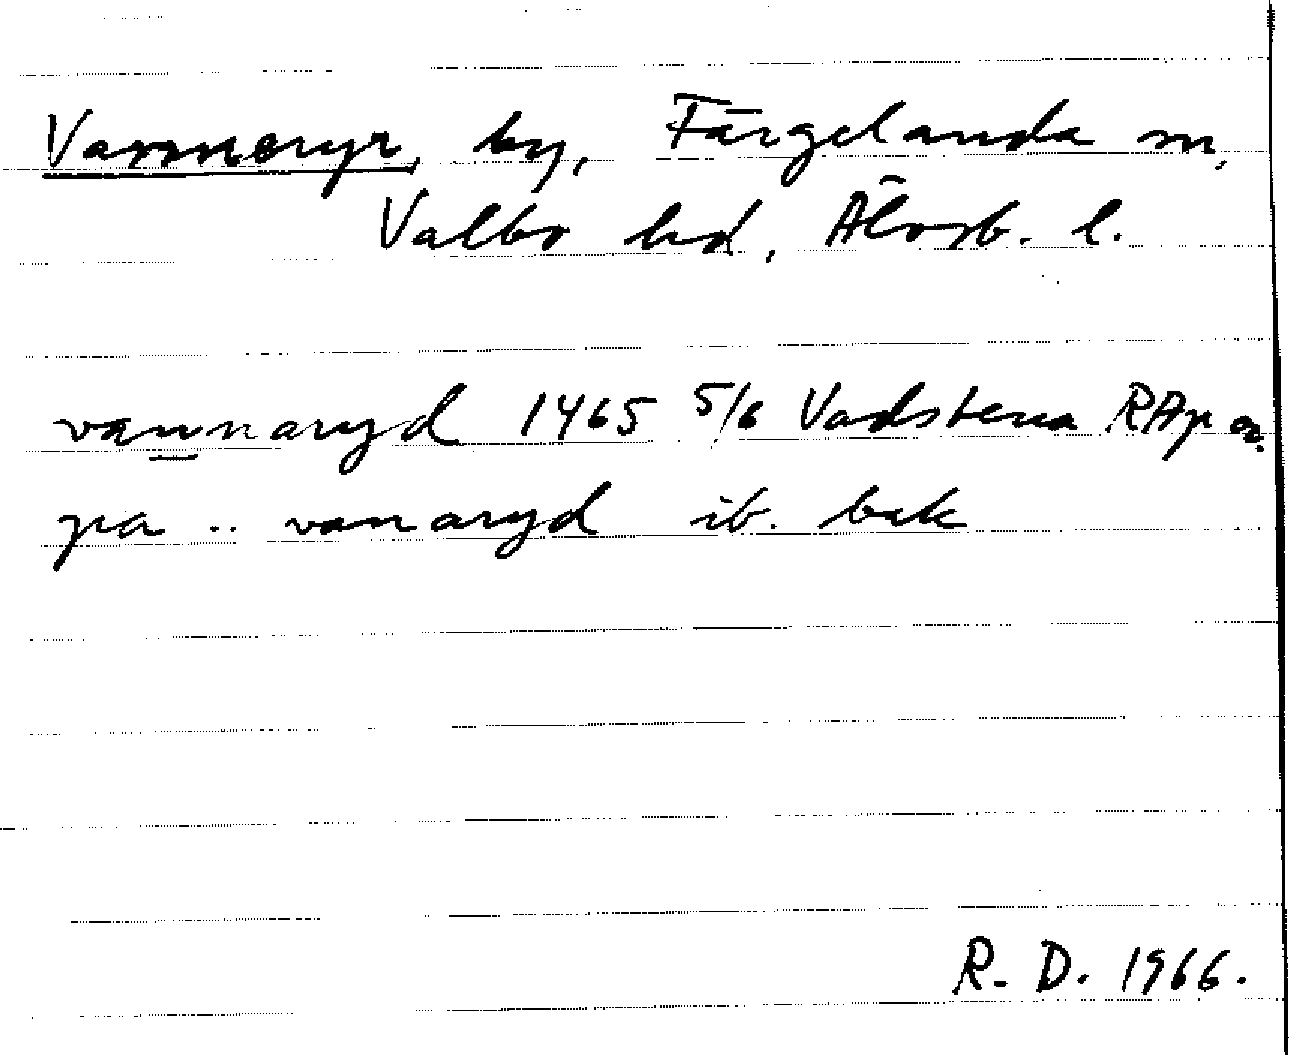 Vanneryr, by, Färgelanda sn,
Valbo hd, Älvsb. l.
vannaryd 1465 5/6 Vadstena RAp or.
pa .. vanaryd ib. bak
R. D. 1966.